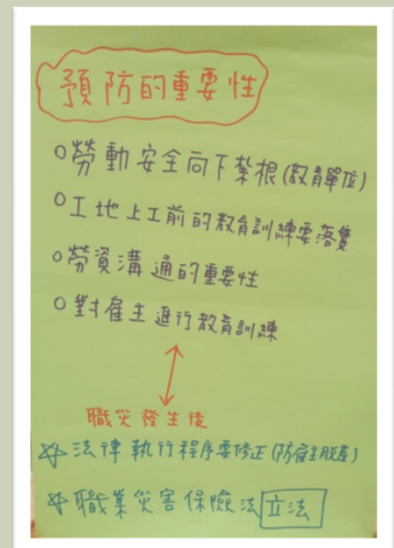 預防的重要性
○勞動安全向下紮根(教育單位)
○工地上工前的教育訓練要落實
○勞資溝通的重要性
○對雇主進行教育訓練
職災發生後
☆法律執行程序要修正(防雇主脫產)
☆職業災害保險法立法